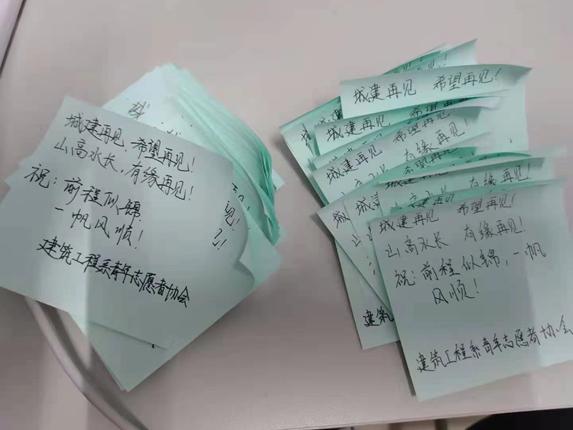 城建再见 希望再见!
山高水长,有缘再见!
祝:前程似锦
一帆风顺!
建筑工程系青年志愿者协会
城建再见 希望再见!
城建再见
城建再见
城建再见 希望再见!
山高水长 有缘再见!
祝:前程似锦,一帆
风顺!
建筑工程系青年志愿者协会